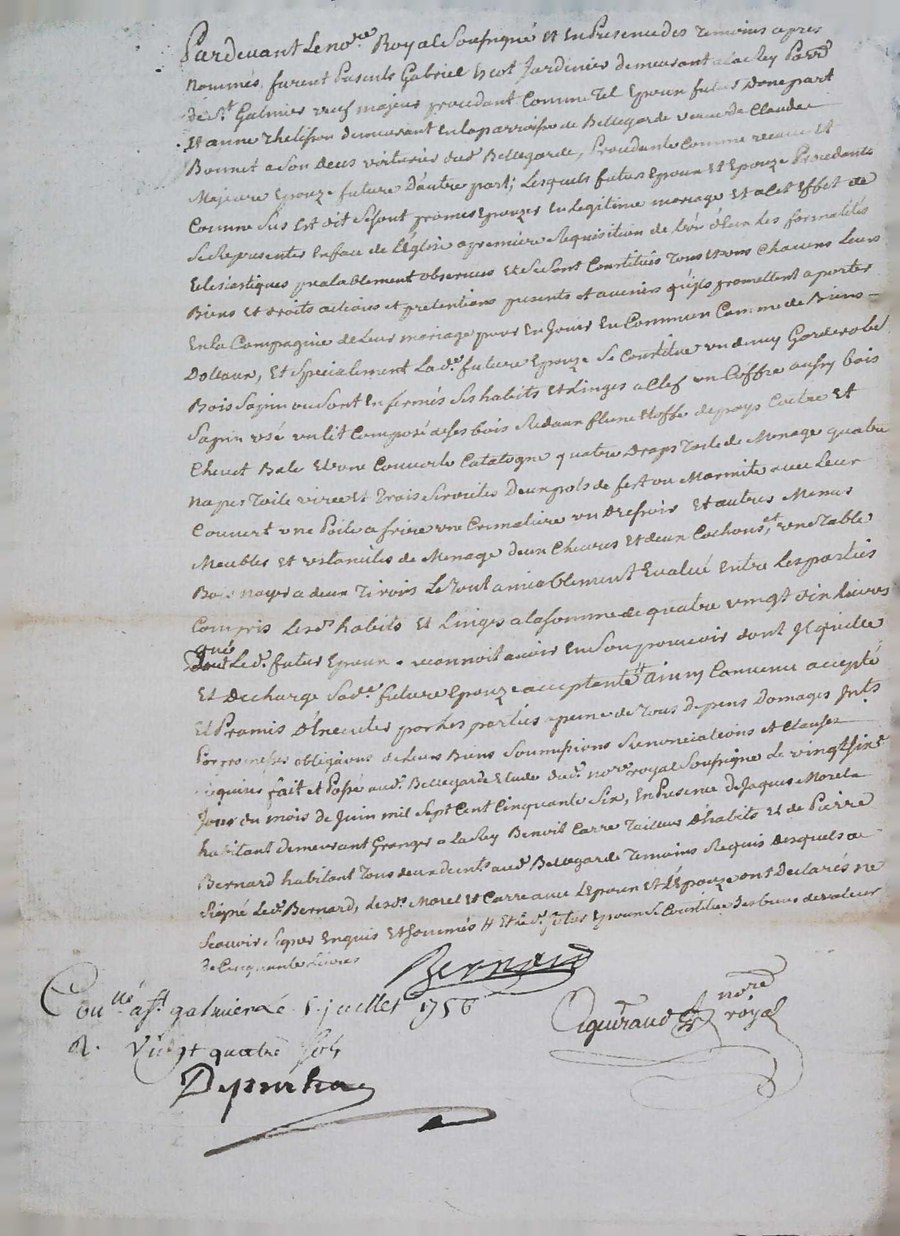 Pardevant Le no.re Royal Soussigné et En Presence des temoins apres
nommés, furent Presents Gabriel Escot Jardinier demeurant a la Rey Parr.e
de S.t Galmier veuf majeur procedant Comme Tel Epoux futur Dune part
Et anne Thelisson demeurant En la parroisse de Bellegarde veuve de Claude
Bonnet a Son deces voiturier dud. Bellegarde, Procedante Comme veuve Et
Majeure Epouze future D'autre part; Lesquels futurs Epoux Et Epouze Procedants
Comme Sus Est dit Se sont promis Epouzer En Legitime mariage Et a Cet Effet de
Se Representer En face de L'Eglise a premiere Requisition de L'un d'eux Les formalités
Eclesiastiques prealablement observées Et Se Sont Constitués Tous Et uns Chacuns Leurs
Biens Et droits actions et pretentions presents et avenirs qu'ils promettent aporter
En la Compagnie de Leur mariage pour En Jouir En Commun Comme de Biens
Dottaux, Et Specialement La d.e future Epouze Se Constitue un demy Garderobe
Bois Sapin ou Sont Enfermés Ses habits Et Linges a Clef un Coffre aussy bois
Sapin usé un lit Composé de Ses bois Rideaux flune Etoffe de pays Coetre Et
Chevet Bale Et une Couverte Catalogne quatre draps Toile de Menage quatre
napes Toile Et Trois Serviettes Deux pots de fert ou Marmite avec Leur
Couvert une Poile a frire une Cremaliere un Drefroir Et autres Menus
Meubles Et ustanciles de Menage deux Chevres Et deux Cochons, et une Table
Bois noyer a deux Tiroirs Le Tout amiablement Evalué Entre Les parties
Compris Les d. habits Et Linges a la Somme de quatre vingt dix Livres
que Le d. futur Epoux reconnoit avoir En Son pouvoir dont Il quitte
Et Decharge Sa d.e future Epouze acceptante ainsy Convenu accepté
Et Promis D'Executer par Les parties a peine de Tous depens Domages Jnts
Par promesses obligaõns de Leurs Biens Soumissions Renonciations et Clauses
requises fait et Passé aud. Bellegarde Etude dud. no.re royal Soussigné Le vingt Six.e
Jour du mois de Juin mil Sept Cent Cinquante Six, En Presence de Jaques Morel
habitant demeurant Granger a la Rey Benoit Carre Tailleur D'habits Et de Pierre
Bernard habitant Tous deux aud. Bellegarde Temoins Requis desquels a
Signé Led. Bernard, Lesd. Morel et Carre avec L'Epoux et L'Epouze ont Declarés ne
Scavoir Signer Enquis Et Sommés Et Led. futur Epoux Se Constitue Ses biens de valeur
de Cinquante Livres
Bernard
Con.llé a S.t galmier Le 5 juillet 1756
R. Vingt quatre sols
no.re
royal